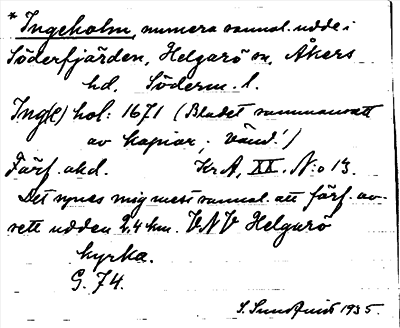 * Ingeholm, numera sannol. udde i
Söderfjärden, Helgarö sn, Åkers
hd. Söderm. l.
Ing(e) hol: 1671 (Bladet sammansatt
av kopior; vänd!)
Färf. akd. KrA, XX, N:o 13.
Det synes mig mest sannol. att förf. av-
sett udden 2,4 km. VNV, Helgarö
kyrka.
G. 74.
S. Sundquist 1935.